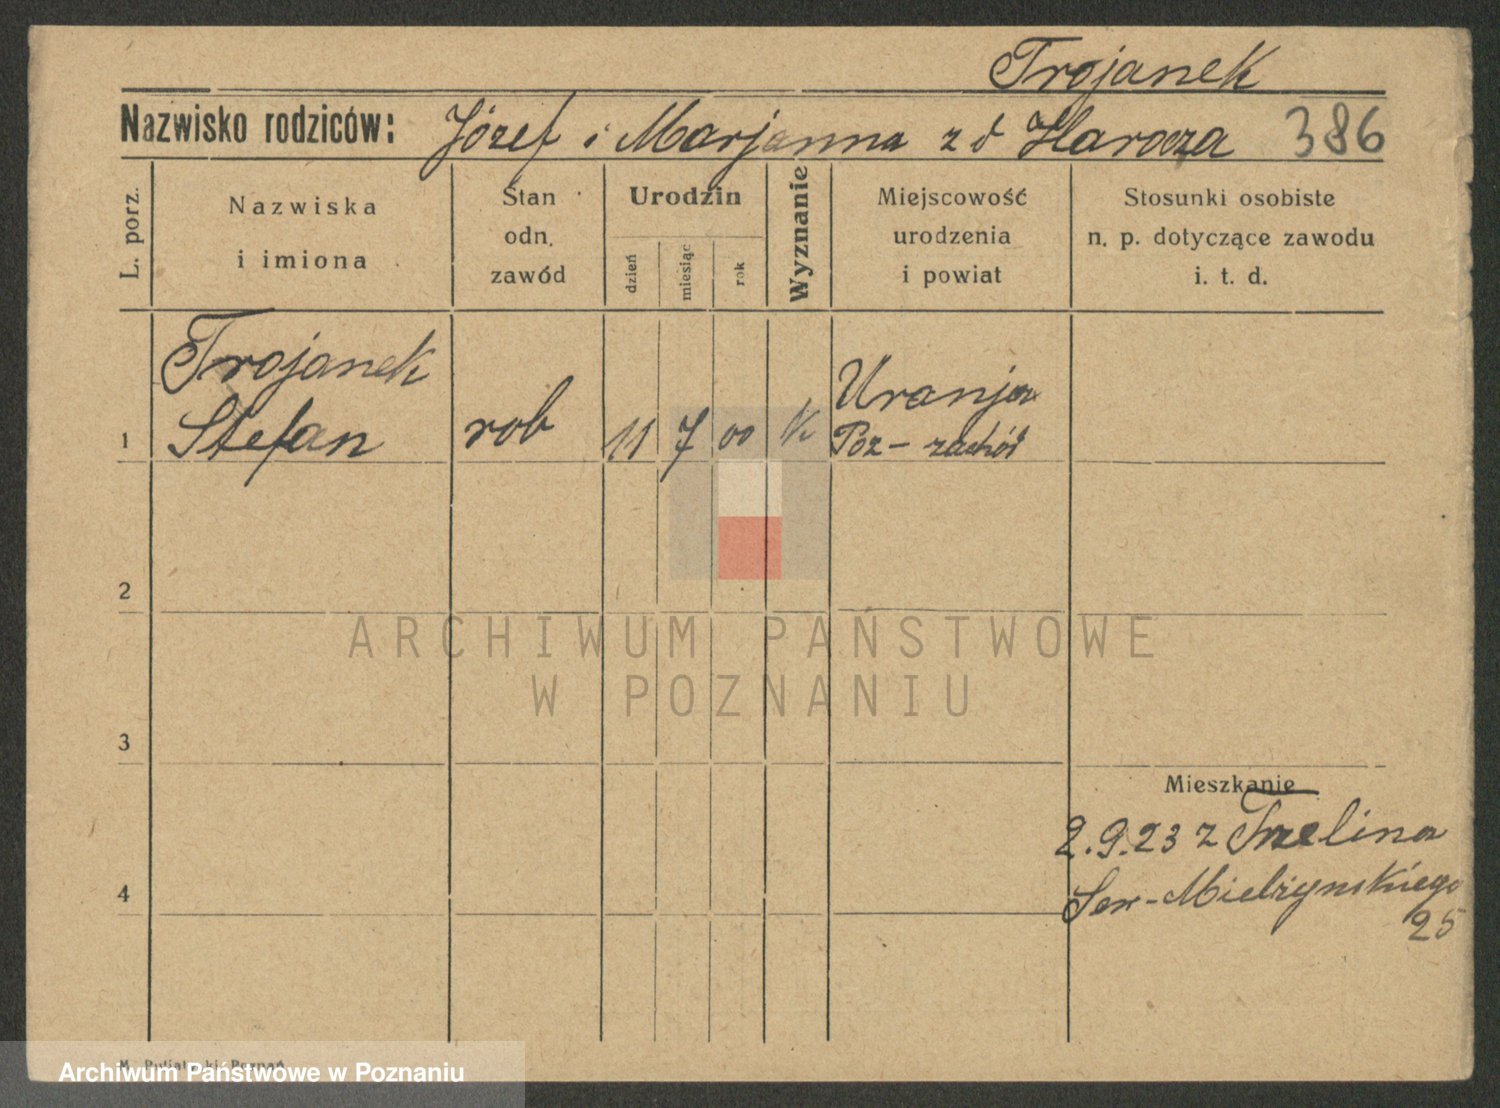 Trojanek
Nazwisko rodziców: Józef i Marjanna z d Harocza 386
L. porz.
Nazwiska
i imiona
Stan
odn.
zawód
Urodzin
dzień
miesiąc
rok
Wyznanie
Miejscowość
urodzenia
i powiat
Stosunki osobiste
n. p. dotyczące zawodu
i. t. d.
Trojanek
Uranja
1 Stefan rob 11 7 00 k Poz - zachód
2
ARCHIWUM PAŃSTWOWE
W POZNANIU
3
Mieszkanie
2.9.23 z Trzelina
4
Sew-Mielżynskiego
25
Poznań
Archiwum Państwowe w Poznaniu